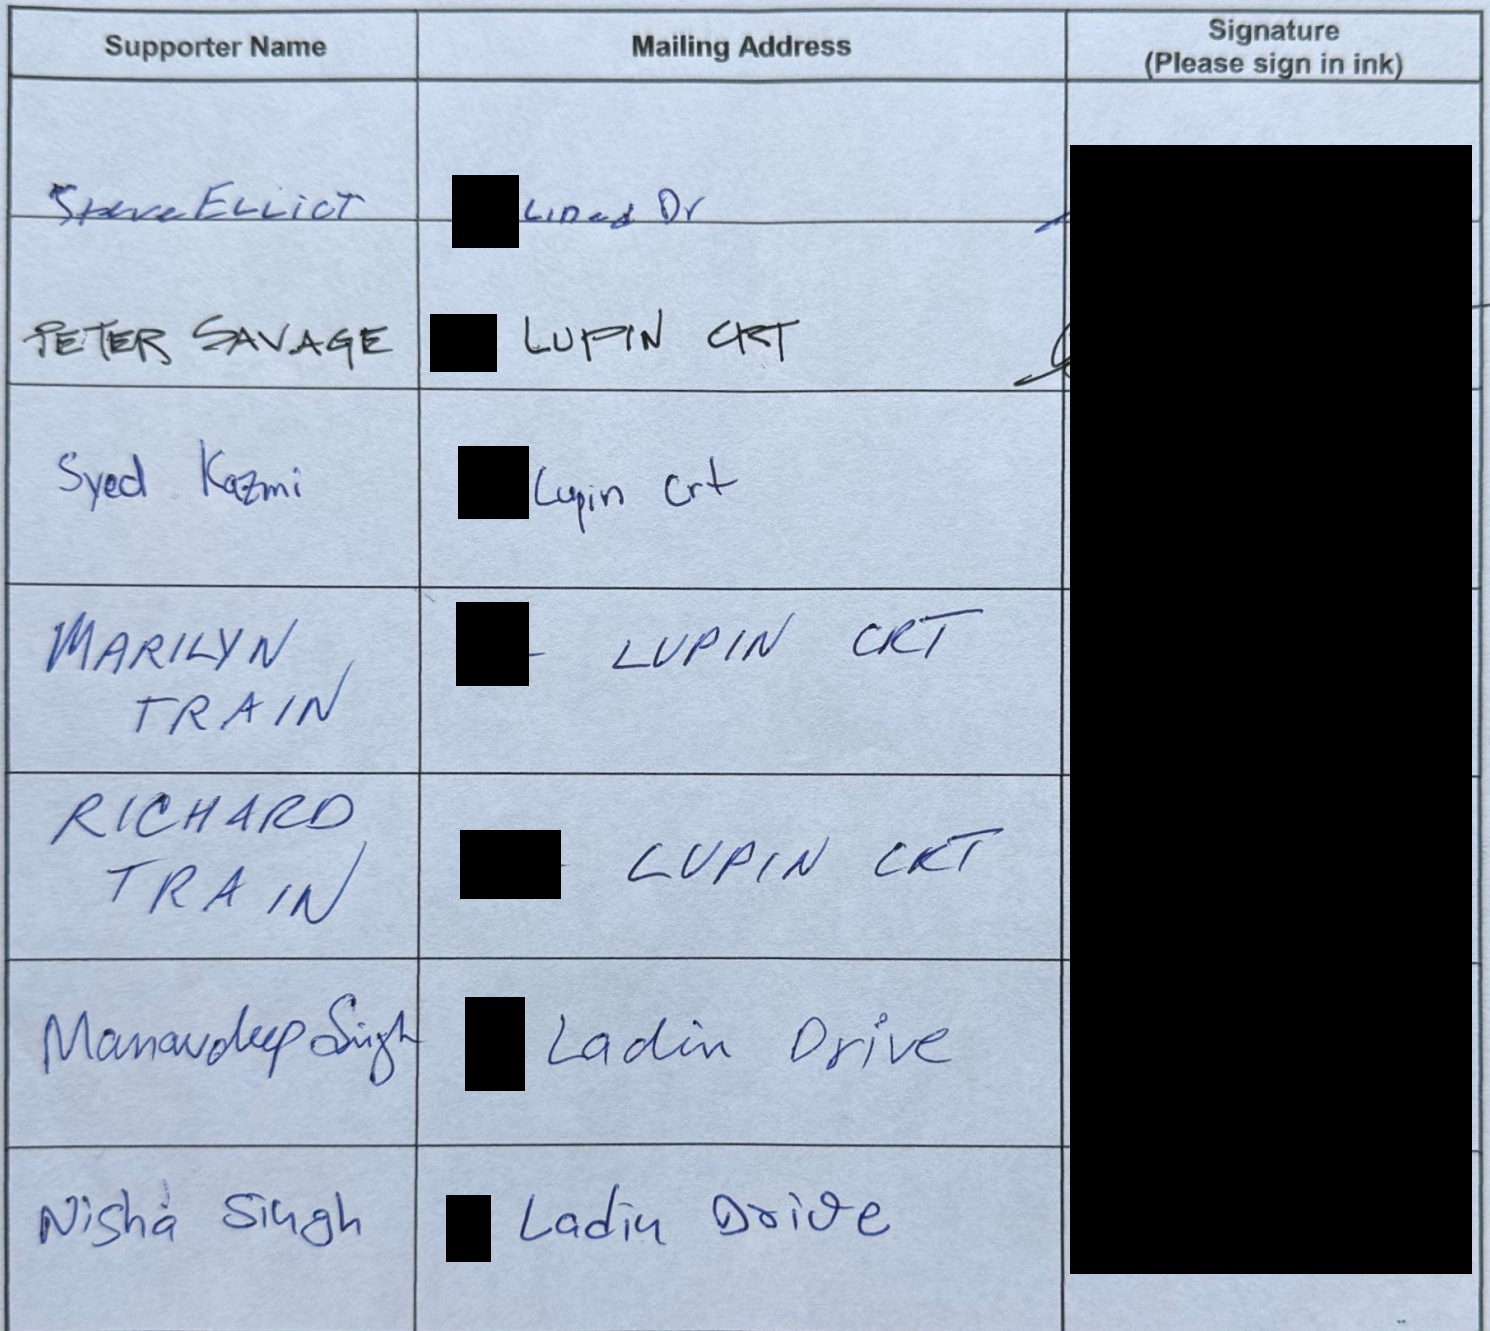 Supporter Name Mailing Address Signature
(Please sign in ink)
Steve ELLIOT Dr
PETER SAVAGE LUPIN CRT
Syed Kazmi Lupin Crt
MARILYN - LUPIN CRT
TRAIN
RICHARD
TRAIN - LUPIN CRT
Manavdeep Singh Ladin Drive
Nisha Singh Ladin Drive